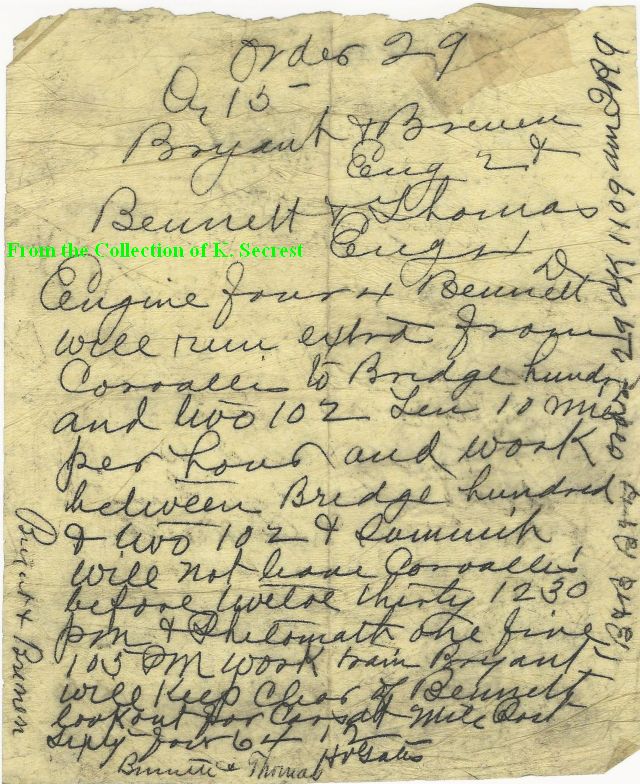 Order 29
On 15
Bryant & Breuen
Eng 2 &
Bennett & Thomas
Eng 4
From the Collection of K. Secrest
Engine four 4 Bennett
will run extra from
Corvallis to Bridge hundred
and two 102 Ten 10 miles
per hour and work
between Bridge hundred
& two 102 & Summit
will not leave Corvallis
before twelve thirty 1230
pm & Philomath one five
105 PM work train Bryant
will Keep Clear of Bennett
lookout for Cars at Mile Post
Sixty four 64 1/2
HvGates
Bennett & Thomas
Bryant & Bremen
order 29 OK 1109 am